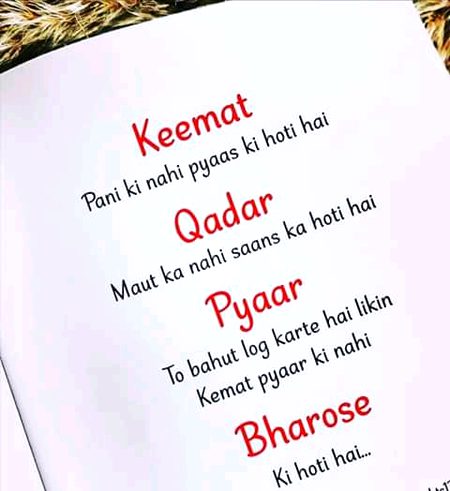 Keemat
Pani ki nahi pyaas ki hoti hai
Qadar
Maut ka nahi saans ka hoti hai
Pyaar
To bahut log karte hai likin
Kemat pyaar ki nahi
Bharose
Ki hoti hai...